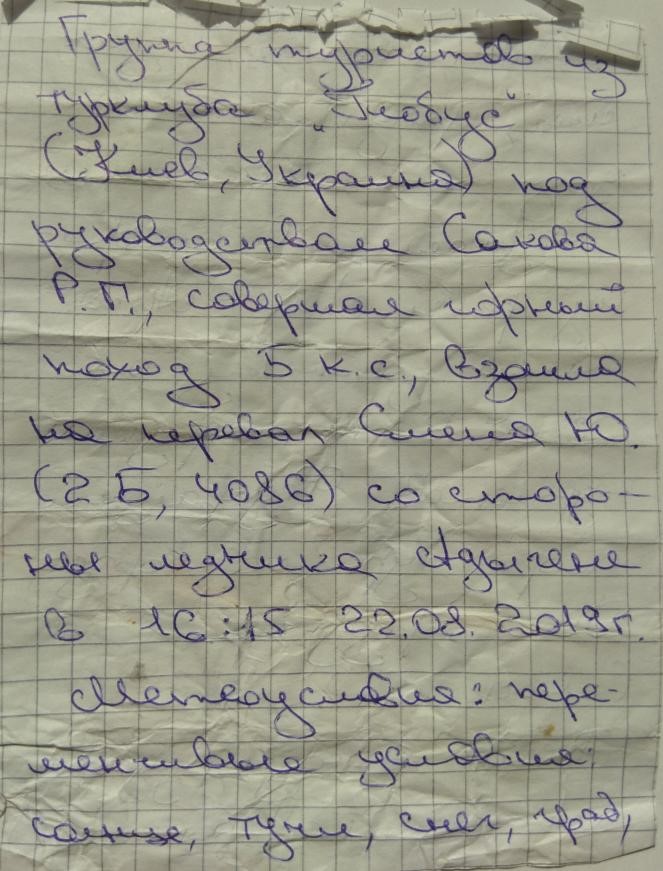 Группа туристов из
турклуба „Глобус"
(Киев, Украина) под
руководством Сакова
Р.П., совершая горный
поход 5 к.с., взошла
на перевал Смена Ю.
(2Б, 4086) со сторо-
ны ледника Адыгене
в 16:15 22.08.2019г.
Метеоусловия: пере-
менчивые условия:
солнце, тучи, снег, град,